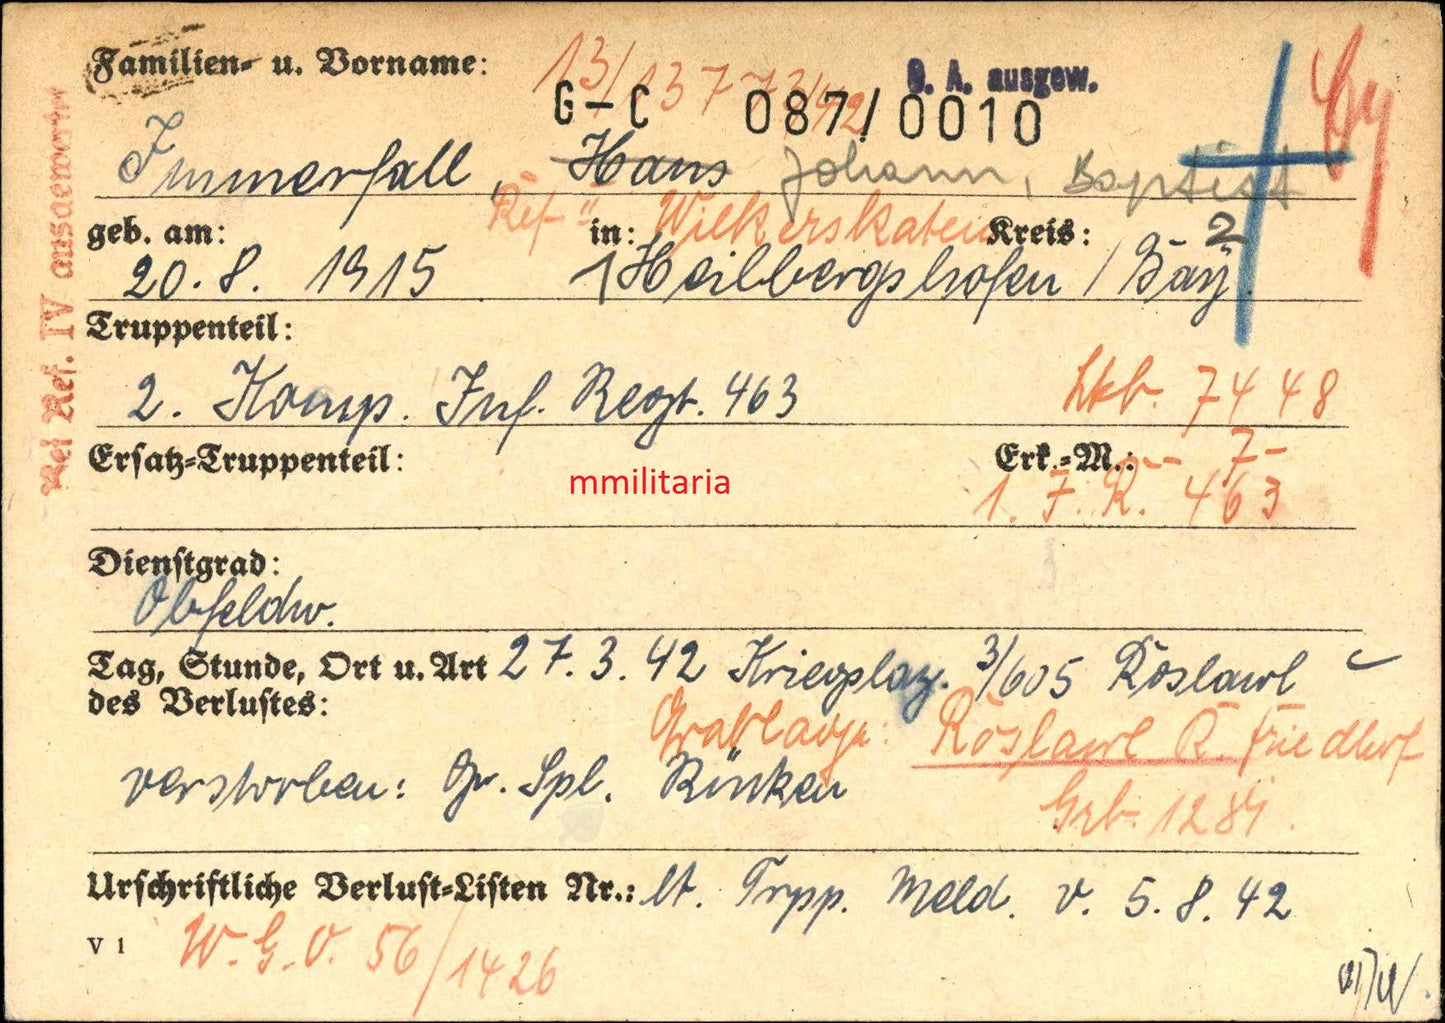 Familien- u. Vorname:
13/137
G-C 087/0010
O. A. ausgew.
Immerfall, Hans Johann, Baptist
geb. am: in: Kreis: 2
20.8. 1915 Heilbergshofen / Bay.
Truppenteil:
2. Komp. Inf. Regt. 463
7448
Ersatz-Truppenteil: Erk.-M.: - 7-
1. F. R. 463
mmilitaria
Dienstgrad:
Obfeldw.
Tag, Stunde, Ort u. Art 27.3.42 Kriegslaz. 3/605 Röslawl
des Verlustes:
Grablage: Röslawl R. Friedhof
verstorben: Gr. Spl. Rücken
Grb. 1284
Urschriftliche Verlust-Listen Nr.: lt. Trpp. Meld. v. 5.8.42
V 1 W.G.O. 56/1426
Bei Ref. IV ausgewertet